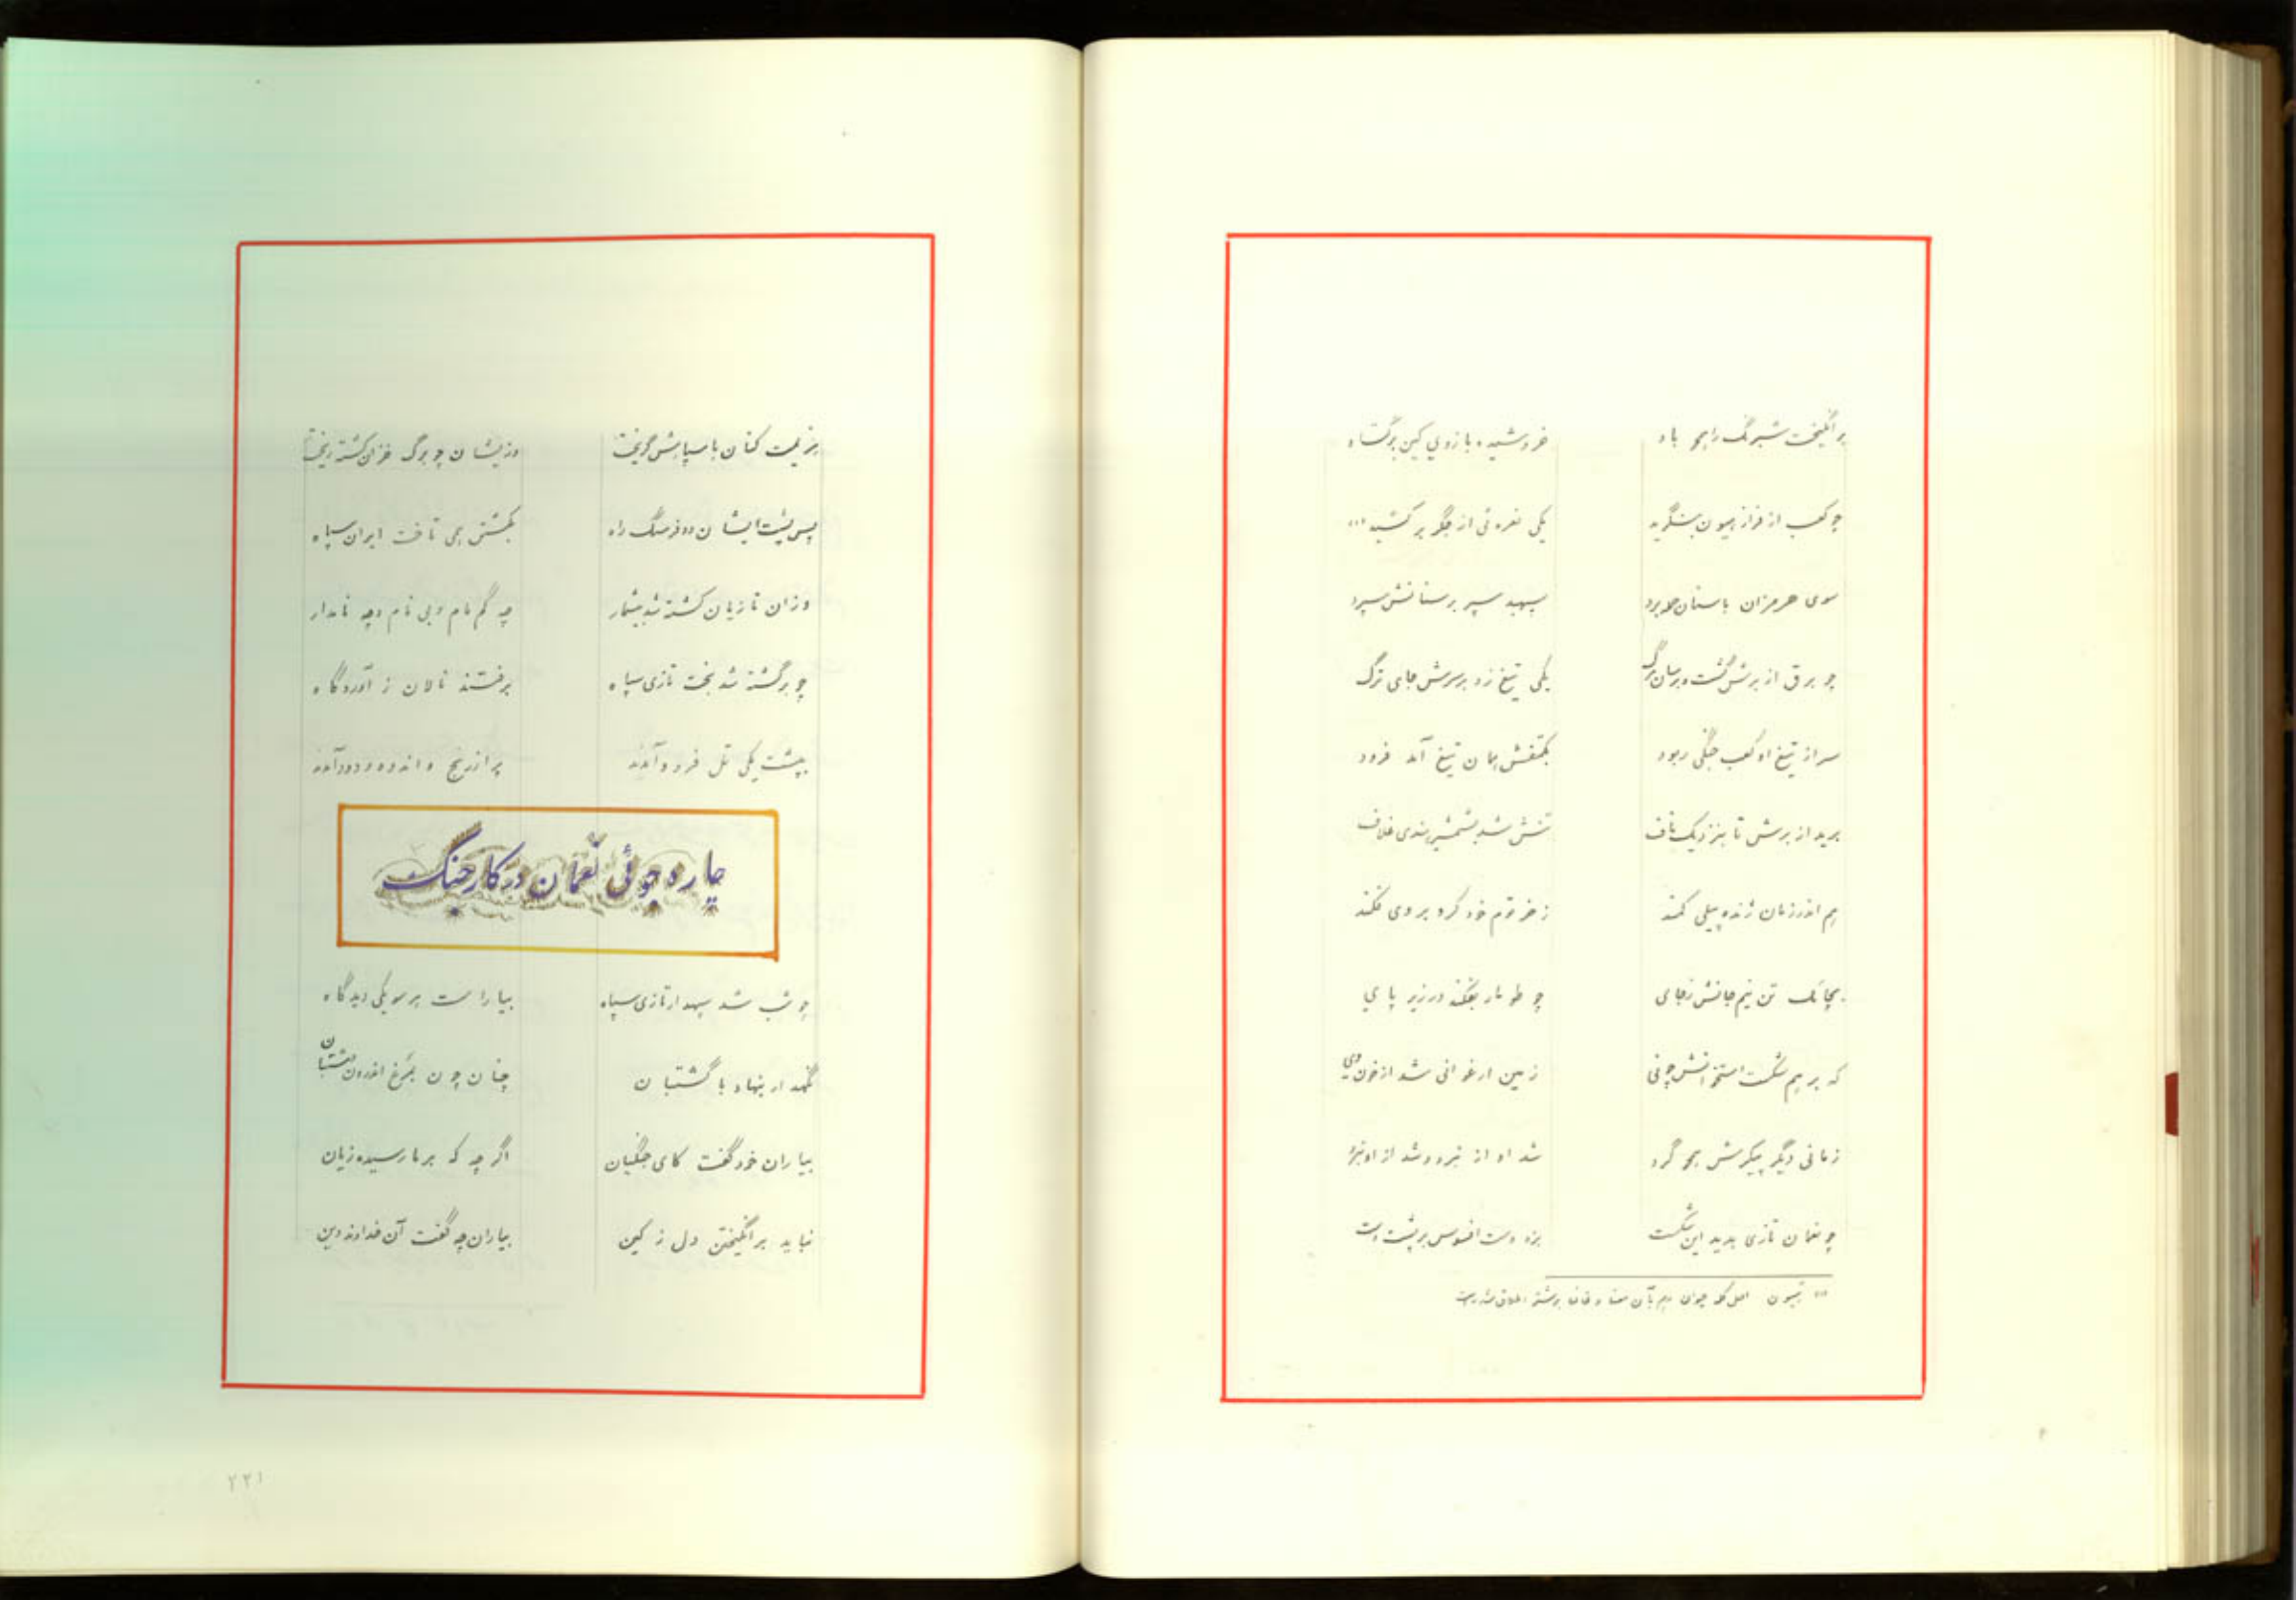 برانگیخت شبرنگ را همچو باد خروشید و بازوی کین برگشاد
چو کعب از فراز هیون بنگرید یکی نعره ئی از جگر برکشید (۱)
سوی هرمزان باسنان حمله برد سپهبد سپر بر سنانش سپرد
چو برق از برش گشت و برسان برگ یکی تیغ زد بر سرش جای ترگ
سر از تیغ او کعب جنگی ربود بکتفش همان تیغ آمد فرود
برید از برش تا بنزدیک ناف تنش شد بشمشیر هندی غلاف
هم اندر زمان ژنده پیلی کمند ز خرطوم خود کرد بر وی فکند
تن نیم جانش ز جای چو طومار بفکند در زیر پای
که بر هم شکست استخوانش چو نی زمین ارغوانی شد از خون وی
زمانی دیگر پیکرش همچو گرد شد او از نبرد و شد از او نبرد
چو نعمان تازی بدید این شکست بزد دست افسوس بر پشت دست
(۱) هیون
هزیمت کنان با سپاهش گریخت وزیشان چو برگ خزان کشته ریخت
پس پشت ایشان دو فرسنگ راه بکشتن همی تاخت ایران سپاه
وزان تازیان کشته شد بیشمار چه گم نام و بی نام و چه نامدار
چو برگشته شد بخت تازی سپاه برفتند نالان ز آوردگاه
بپشت یکی تل فرود آمدند پر از رنج و اندوه و دود آمدند
چاره جوئی نعمان در کار جنگ
چو شب شد سپهدار تازی سپاه بیاراست هر سو یکی دیدگاه
نگهدار بنهاد با گشتبان چنان چون بمرغ اندرون دشتبان
بیاران خود گفت کای جنگیان اگر چه که بر ما رسیده زیان
نباید برانگیختن دل ز کین بیاران چه گفت آن خداوند دین
۲۲۱